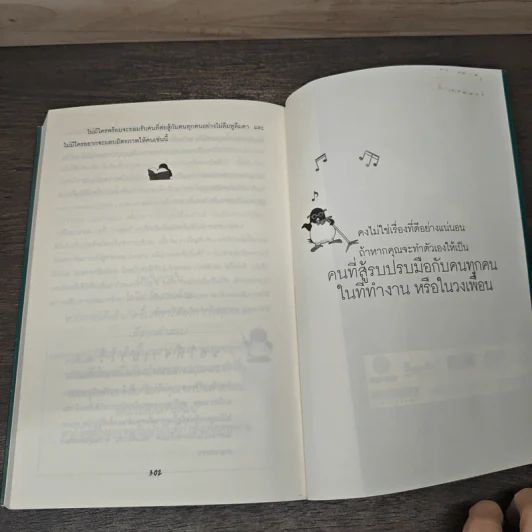 ไม่มีใครพร้อมจะยอมรับคนที่ต่อสู้กับคนทุกคนอย่างไม่ลืมหูลืมตา และ
ไม่มีใครอยากจะมอบมิตรภาพให้คนเช่นนี้
102
คงไม่ใช่เรื่องที่ดีอย่างแน่นอน
ถ้าหากคุณจะทำตัวเองให้เป็น
คนที่สู้รบปรบมือกับคนทุกคน
ในที่ทำงาน หรือในวงเพื่อน